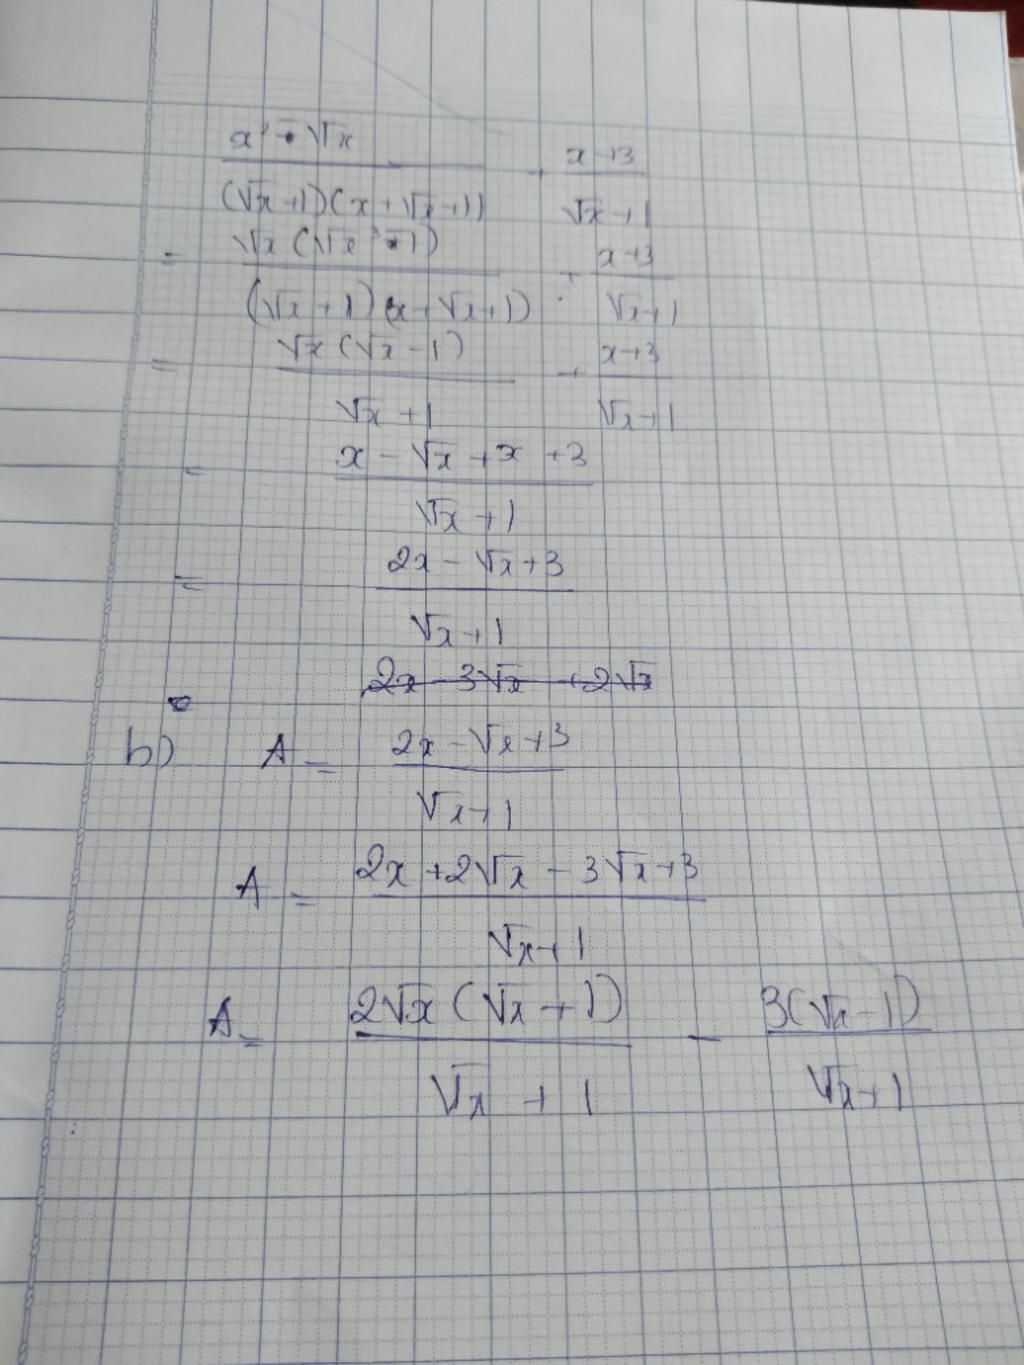 x² - √x / (√x+1)(x+√x+1) + x+3 / √x+1
= √x(√x³-1) / (√x+1)(x+√x+1) + x+3 / √x+1
= √x(√x-1) / √x+1 + x+3 / √x+1
= x-√x+x+3 / √x+1
= 2x-√x+3 / √x+1
2x-3√x+2√x
b) A = 2x-√x+3 / √x+1
A = 2x+2√x-3√x+3 / √x+1
A = 2√x(√x+1) / √x+1 - 3(√x-1) / √x+1